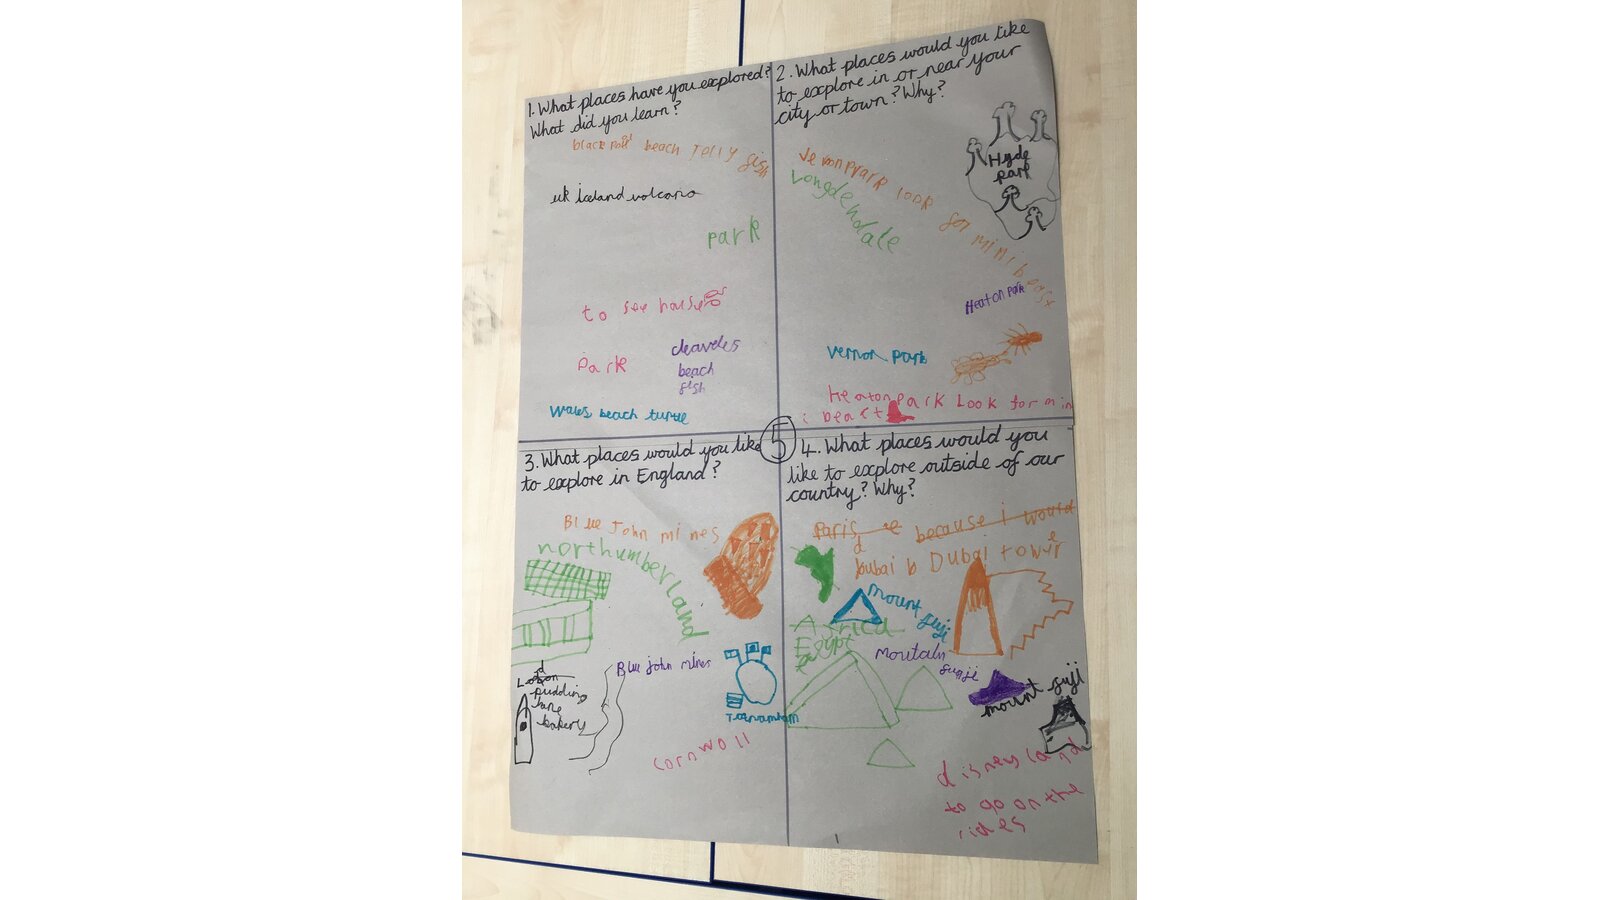 1. What places have you explored?
What did you learn?
blackpool beach jelly fish
uk iceland volcano
park
to see house
park
cleaveles
beach
fish
Wales beach turtle
2. What places would you like
to explore in or near your
city or town? Why?
Vernonprark look for mini beast
Longdendale
Hyde
park
Heaton park
vernon park
Heaton park Look for min
i beast
5
3. What places would you like
to explore in England?
Blue John mines
northumberland
pudding
lane
bakery
Blue john mines
cornwall
4. What places would you
like to explore outside of our
country? Why?
Paris because i would
Dubai b Dubai tower
mount fuji
Africa
Egypt
moutain
fugji
mount fuji
disneyland
to go on the
rides